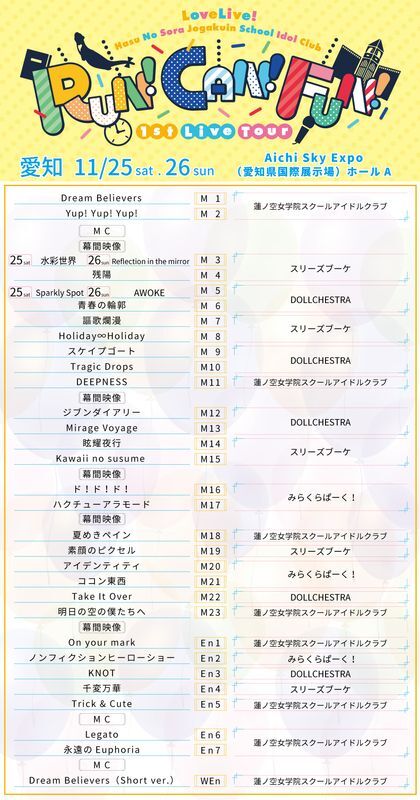 LoveLive!
Hasu No Sora Jogakuin School Idol Club
RUN! CAN! FUN!
1st Live Tour
愛知 11/25 sat . 26 sun
Aichi Sky Expo
（愛知県国際展示場）ホール A
Dream Believers M 1 蓮ノ空女学院スクールアイドルクラブ
Yup! Yup! Yup! M 2
M C
幕間映像
25 sat 水彩世界 26 sun Reflection in the mirror M 3 スリーズブーケ
残陽 M 4
25 sat Sparkly Spot 26 sun AWOKE M 5 DOLLCHESTRA
青春の輪郭 M 6
謳歌爛漫 M 7 スリーズブーケ
Holiday∞Holiday M 8
スケイプゴート M 9 DOLLCHESTRA
Tragic Drops M10
DEEPNESS M11 蓮ノ空女学院スクールアイドルクラブ
幕間映像
ジブンダイアリー M12 DOLLCHESTRA
Mirage Voyage M13
眩耀夜行 M14 スリーズブーケ
Kawaii no susume M15
幕間映像
ド！ド！ド！ M16 みらくらぱーく！
ハクチューアラモード M17
幕間映像
夏めきペイン M18 蓮ノ空女学院スクールアイドルクラブ
素顔のピクセル M19 スリーズブーケ
アイデンティティ M20 みらくらぱーく！
ココン東西 M21
Take It Over M22 DOLLCHESTRA
明日の空の僕たちへ M23 蓮ノ空女学院スクールアイドルクラブ
幕間映像
On your mark En1 蓮ノ空女学院スクールアイドルクラブ
ノンフィクションヒーローショー En2 みらくらぱーく！
KNOT En3 DOLLCHESTRA
千変万華 En4 スリーズブーケ
Trick & Cute En5 蓮ノ空女学院スクールアイドルクラブ
M C
Legato En6 蓮ノ空女学院スクールアイドルクラブ
永遠の Euphoria En7
M C
Dream Believers（Short ver.） WEn 蓮ノ空女学院スクールアイドルクラブ